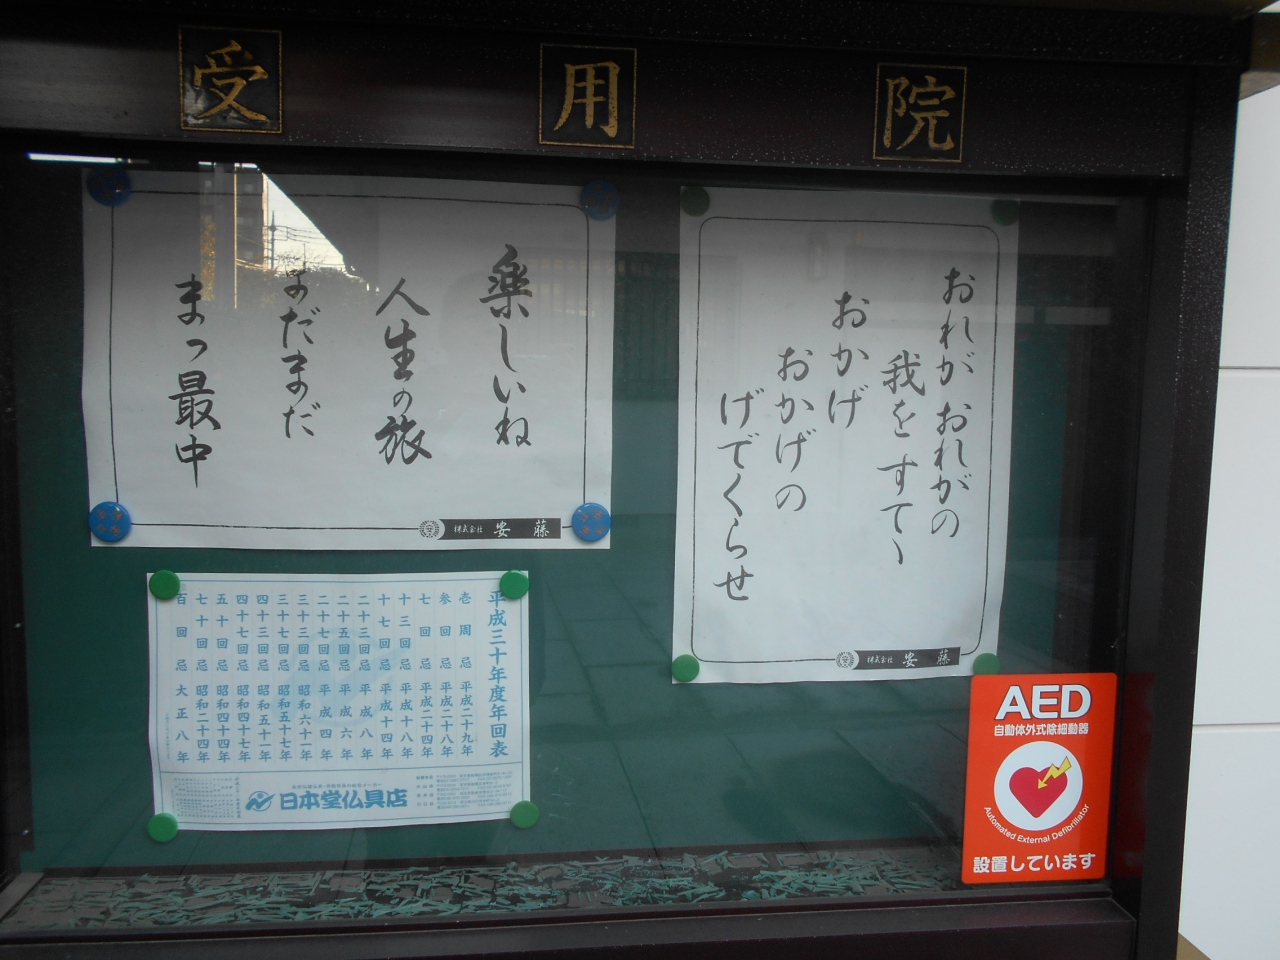 受用院
おれが おれがの
我をすてヽ
おかげ
おかげの
げでくらせ
株式会社 安藤
楽しいね
人生の旅
まだまだ
まっ最中
株式会社 安藤
平成三十年度年回表
壱周忌 平成二十九年
参回忌 平成二十八年
七回忌 平成二十四年
十三回忌 平成十八年
十七回忌 平成十四年
二十三回忌 平成八年
二十五回忌 平成六年
二十七回忌 平成四年
三十三回忌 昭和六十一年
三十七回忌 昭和五十七年
四十三回忌 昭和五十一年
四十七回忌 昭和四十七年
五十回忌 昭和四十四年
七十回忌 昭和二十四年
百回忌 大正八年
日本堂仏具店
AED
自動体外式除細動器
Automated External Defibrillator
設置しています